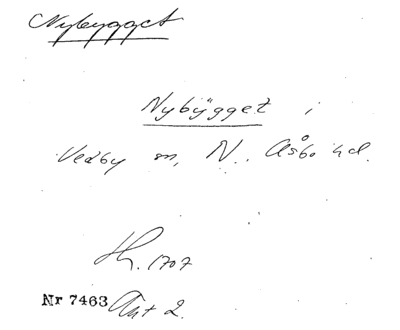 Nybygget
Nybÿgget i
Vedby sn, N. Åsbo hd.
Th. 1707
Nr 7463 Ant 2.